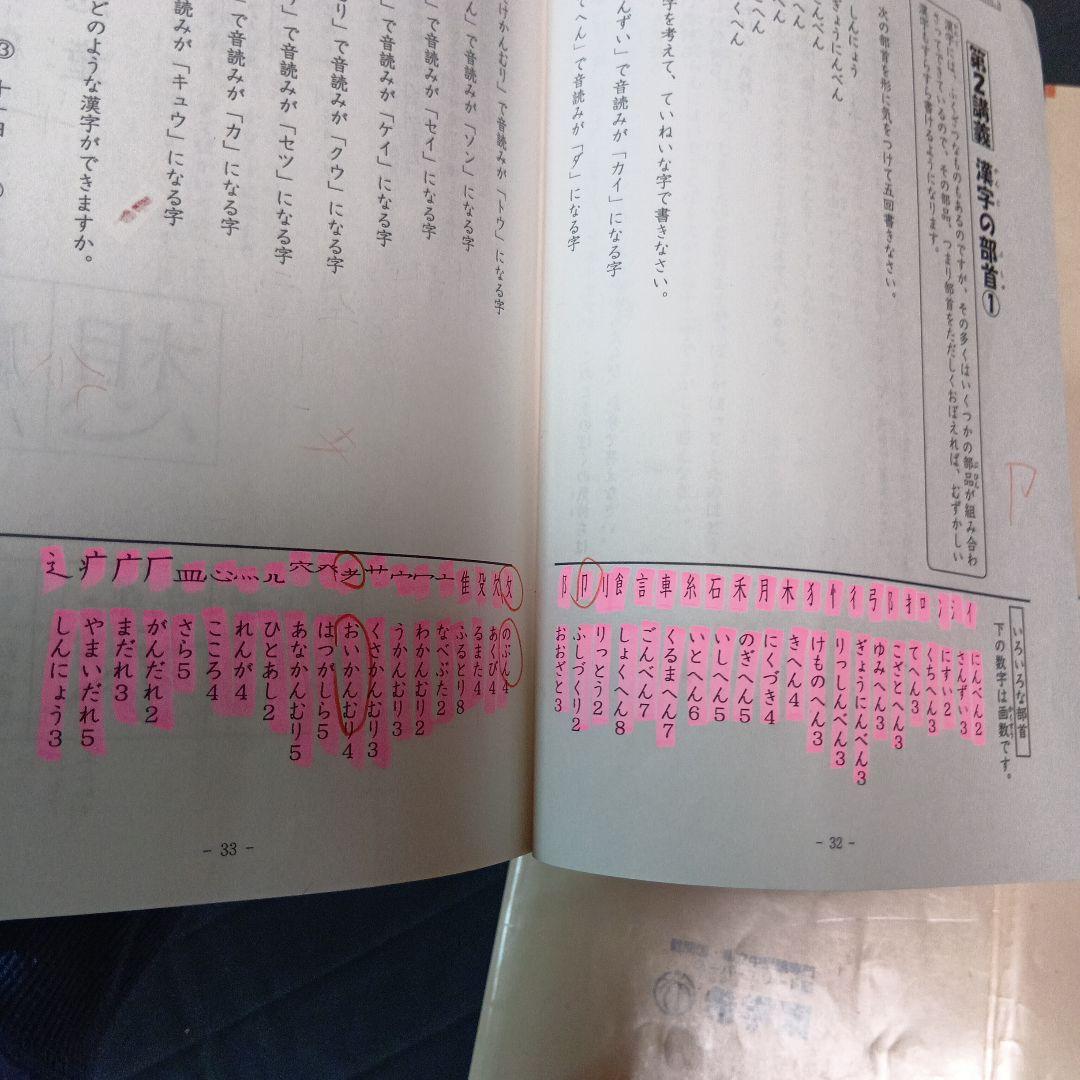 第2講義 漢字の部首①
漢字には、ふくざつなものもあるのですが、その多くはいくつかの部品が組み合わ
さってできているので、その部品、つまり部首をただしくおぼえれば、むずかしい
漢字もすらすら書けるようになります。
次の部首を形に気をつけて五回書きなさい。
しんにょう
ぎょうにんべん
字を考えて、ていねいな字で書きなさい。
んずい」で音読みが「カイ」になる字
てへん」で音読みが「ダ」になる字
いろいろな部首
下の数字は画数です。
イ にんべん2
氵 さんずい3
冫 にすい2
口 くちへん3
扌 てへん3
阝 こざとへん3
弓 ゆみへん3
彳 ぎょうにんべん3
忄 りっしんべん3
犭 けものへん3
木 きへん4
月 にくづき4
禾 のぎへん5
石 いしへん5
糸 いとへん6
車 くるまへん7
言 ごんべん7
飠 しょくへん8
刂 りっとう2
卩 ふしづくり2
阝 おおざと3
- 32 -
けかんむり」で音読みが「トウ」になる字
ん」で音読みが「ソン」になる字
」で音読みが「セイ」になる字
」で音読みが「ケイ」になる字
り」で音読みが「クウ」になる字
」で音読みが「セツ」になる字
」で音読みが「カ」になる字
読みが「キュウ」になる字
どのような漢字ができますか。
③
攵 のぶん4
欠 あくび4
殳 るまた4
隹 ふるとり8
亠 なべぶた2
冖 わかんむり2
宀 うかんむり3
艹 くさかんむり3
耂 おいかんむり4
癶 はつがしら5
穴 あなかんむり5
儿 ひとあし2
灬 れんが4
心 こころ4
皿 さら5
厂 がんだれ2
广 まだれ3
疒 やまいだれ5
辶 しんにょう3
- 33 -